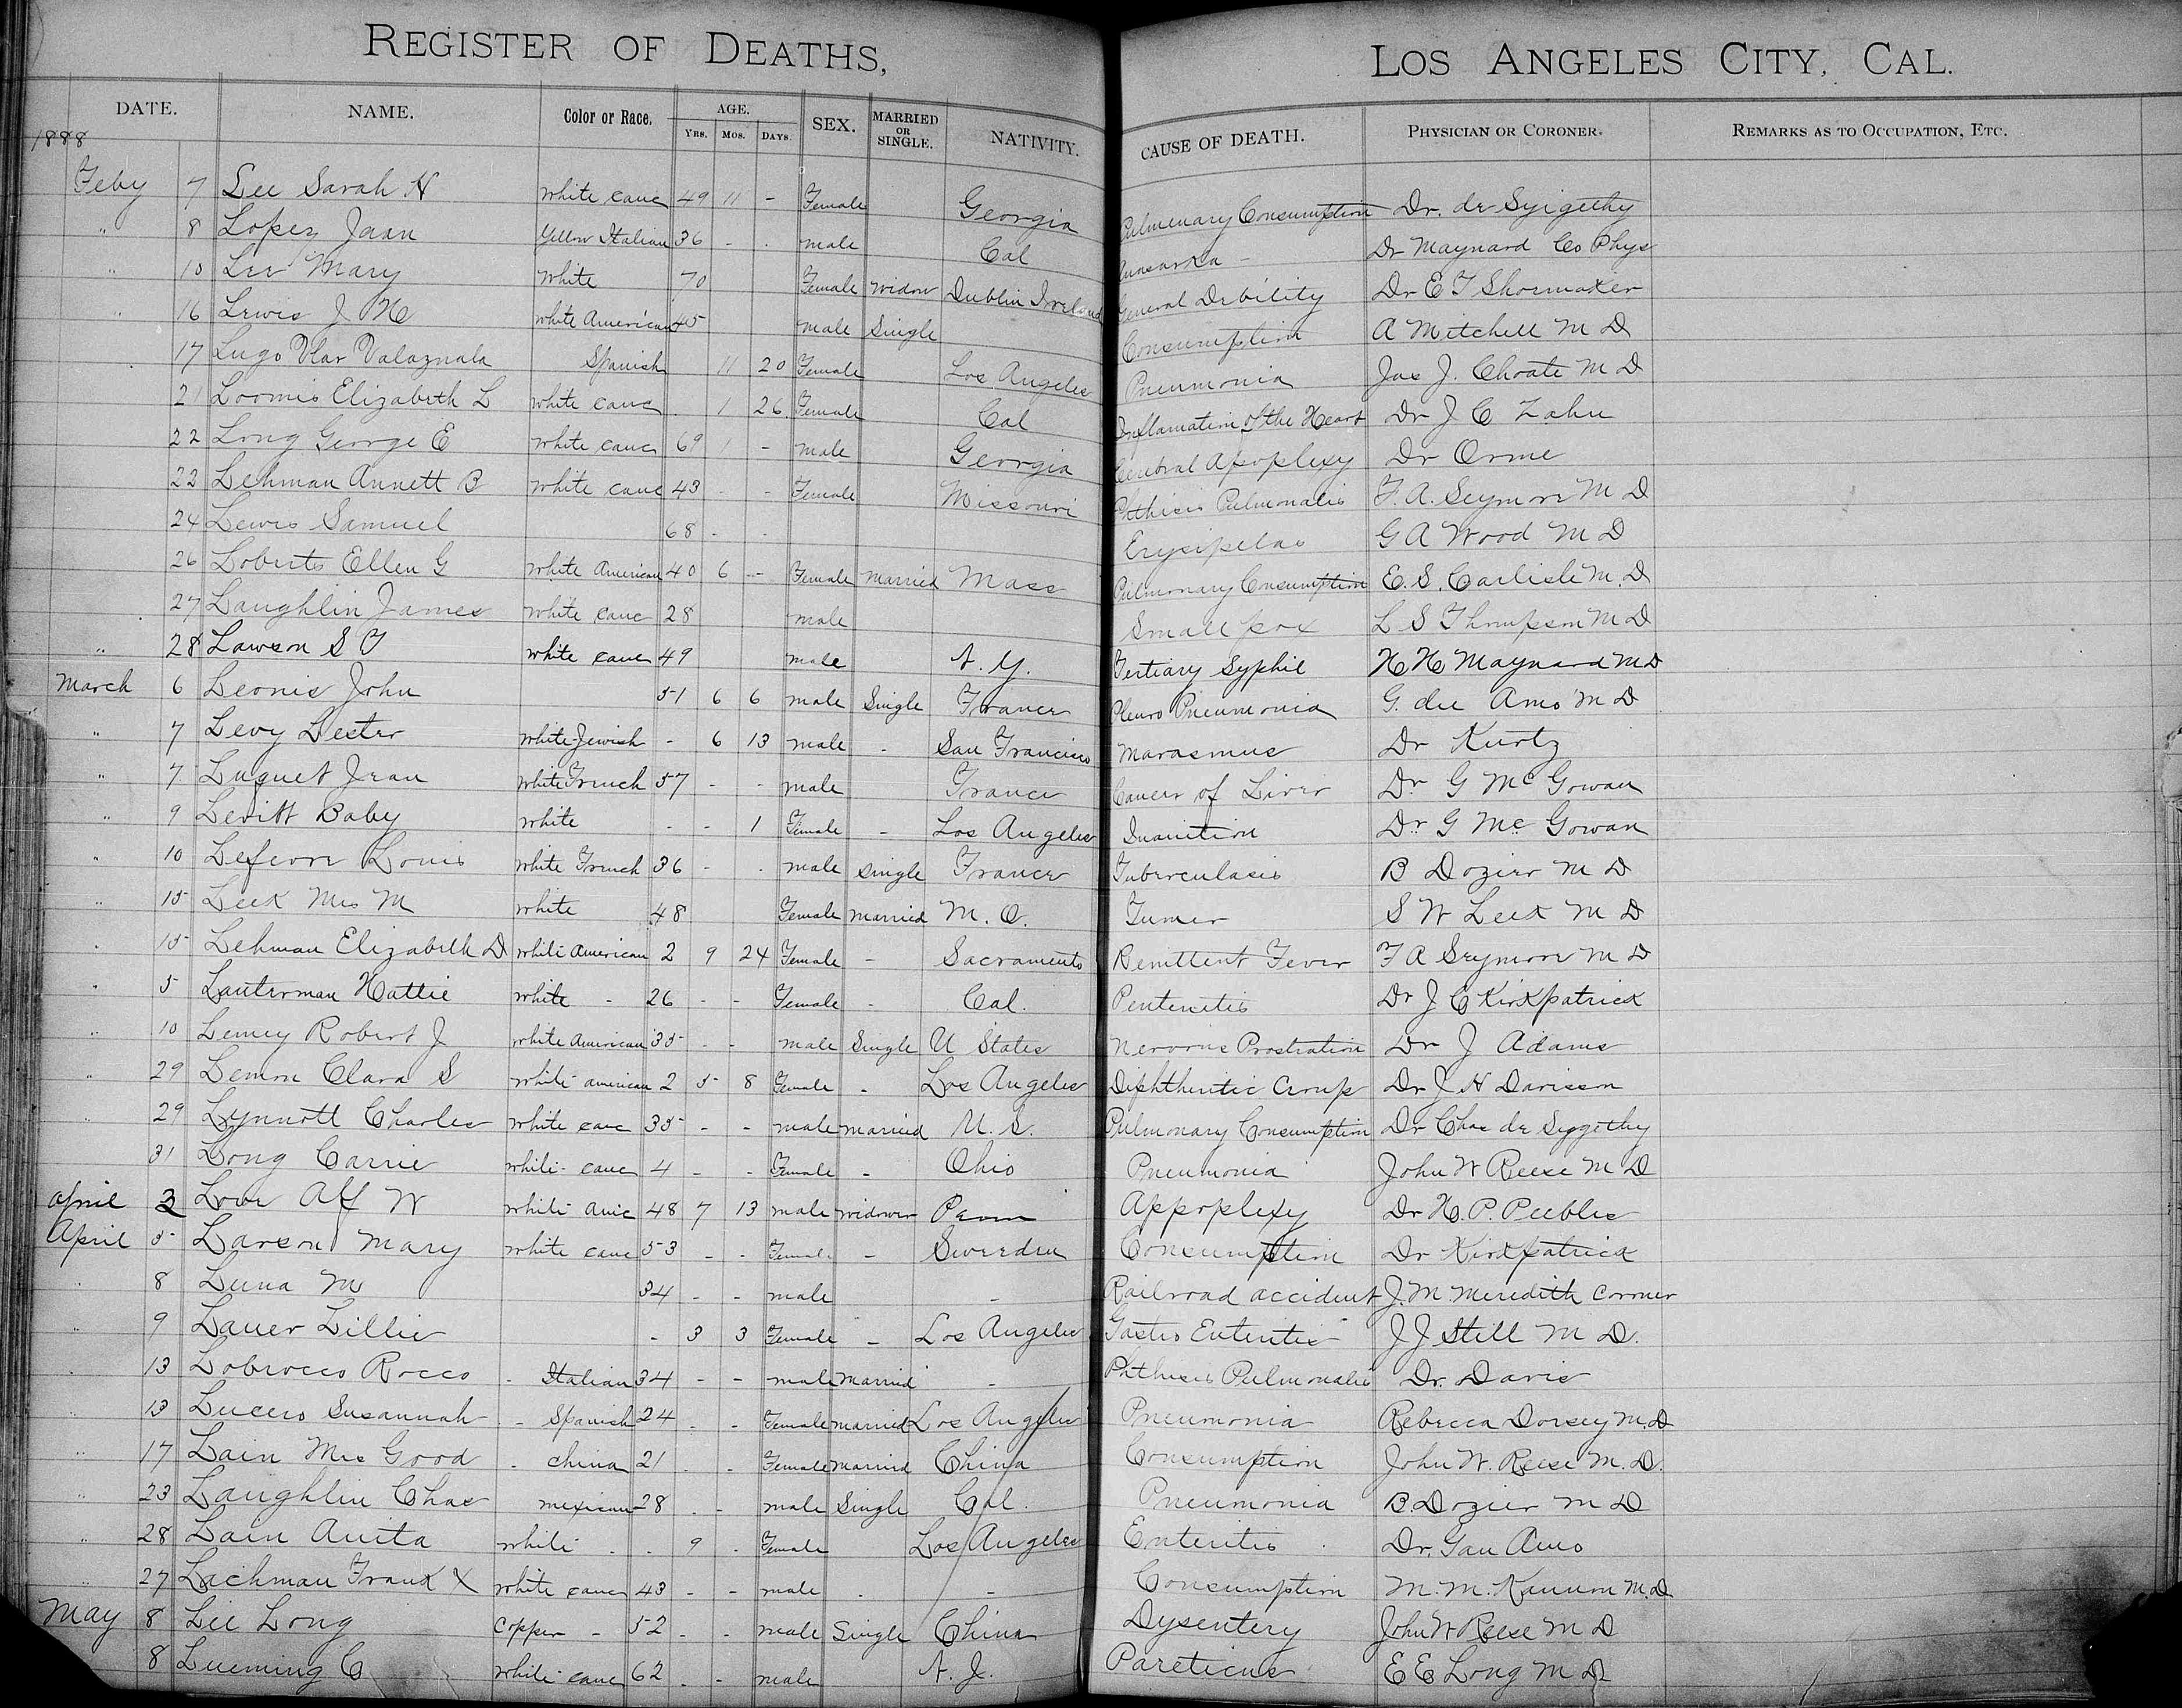 REGISTER OF DEATHS, LOS ANGELES CITY, CAL.
DATE. NAME. Color or Race. AGE. YRS. MOS. DAYS. SEX. MARRIED OR SINGLE. NATIVITY. CAUSE OF DEATH. PHYSICIAN OR CORONER. REMARKS AS TO OCCUPATION, ETC.
1888
Feby 7 Lee Sarah H white cauc 49 11 - Female Georgia Pulmonary Consumption Dr. de Syigethy
" 8 Lopez Jaan Yellow Italian 36 - - male Cal Anasarka - Dr Maynard Co Phys
" 10 Lee Mary white 70 Female widow Dublin Ireland General Debility Dr E T Shoemaker
" 16 Lewis J H white American 45 male Single Consumption A Mitchell M D
17 Lugo Spanish 11 20 Female Los Angeles Pneumonia Jas J. Choate M D
21 Loomis Elizabeth L white cauc 1 26 Female Cal Inflamation of the Heart Dr J C Zahn
22 Long George E white cauc 69 1 - male Georgia Cerebral Apoplexy Dr Orme
22 Lehman Annett B white cauc 43 - - Female Missouri Phthisis Pulmonalis F. A. Seymore M D
24 Lewis Samuel 68 - - Erysipelas G A Wood M D
26 Loberts Ellen G white American 40 6 - Female Married Mass Pulmonary Consumption E. S. Carlisle M. D
27 Laughlin James white cauc 28 male Small pox L S Thompson M D
" 28 Lawson S T white cauc 49 male N. Y. Tertiary Syphil H H Maynard M D
March 6 Leonis John 51 6 6 male Single France Pleuro Pneumonia G. del Amo M D
" 7 Levy Lester white Jewish - 6 13 male - San Francisco Marasmus Dr Kurtz
" 7 Luquet Jean white French 57 - - male France Cancer of Liver Dr G McGowan
" 9 Levitt Baby white - - 1 Female - Los Angeles Inanition Dr G McGowan
" 10 Lefevre Louis white French 36 - - male single France Tuberculasis B Dozier M D
" 15 Leek Mrs M white 48 Female Married M. O. Tumer S W Leek M D
" 15 Lehman Elizabeth D white American 2 9 24 Female - Sacramento Remittent Fever F A Seymore M D
" 5 Lauterman Hattie white - 26 - - Female - Cal. Pentenitis Dr J C Kirkpatrick
" 10 Lemey Robert J white American 35 - - male Single U States Nervous Prostration Dr J Adams
" 29 Lemon Clara S white american 2 5 8 Female - Los Angeles Diphtheritic Croup Dr J H Davisson
" 29 Lynnott Charles white cauc 35 - - male married U. S. Pulmonary Consumption Dr Chas de Syggethy
31 Long Carrie white cauc 4 - - Female - Ohio Pneumonia John W Reese M D
april 2 Love Alf W white 48 7 13 male widower Appoplexy Dr H. P. Peebles
April 5 Larson Mary white cauc 53 - - Female - Sweeden Consumption Dr Kirkpatrick
" 8 Luna M 34 - - male - Railroad accident J. M. Meredith Corner
" 9 Lauer Lillie - 3 3 Female - Los Angeles Gastro Enteritis J J Still M D.
" 13 Lobrocco Rocco - Italian 34 - - male Married - Phthisis Pulmonalis Dr. Davis
" 13 Lucero Susannah - Spanish 24 - - Female Married Los Angeles Pneumonia Rebecca Dorsey M. D
" 17 Lain Mrs Good - china 21 - - Female Married China Consumption John W. Reese M. D.
" 23 Laughlin Chas mexican 28 - - male Single Cal. Pneumonia B. Dozier M D
" 28 Lain Anita white - - 9 - Female Los Angeles Enteritis Dr. Amo
" 27 Lachman Frank X white cauc 43 - - male - - Consumption M. M. Kannon M. D
May 8 Lie Long Copper - 52 - - male Single China Dysentery John W Reese M D
8 Lueming C white cauc 62 - - male N. J. Pareticus E E Long M D